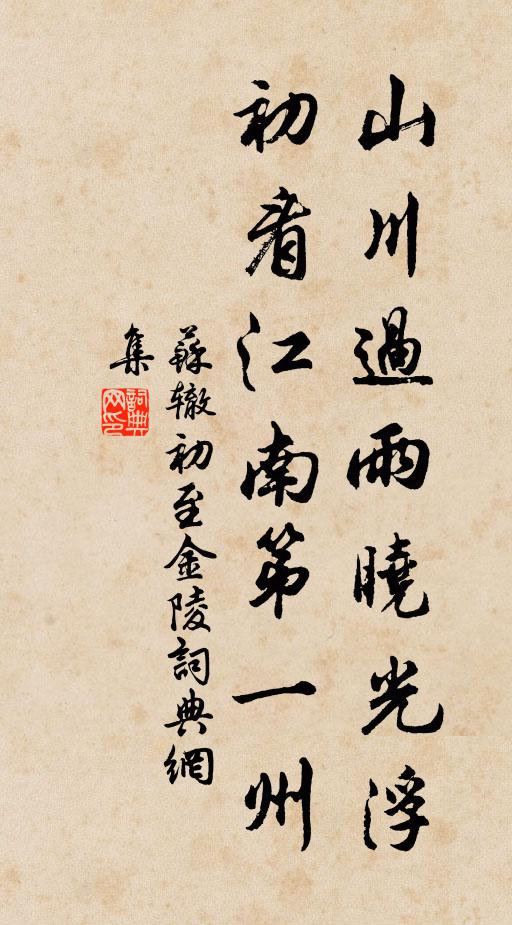 山川過雨曉光浮
初看江南第一州
蘇辙初至金陵詞典網
集
詞典网印